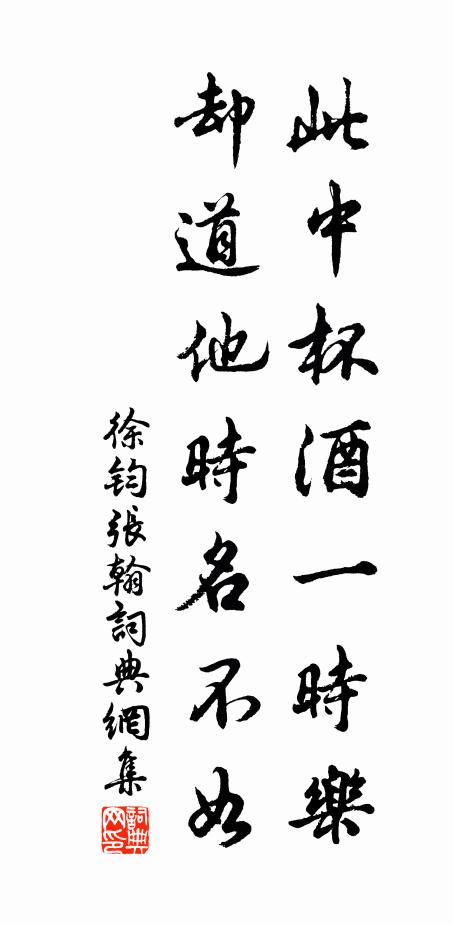 此中杯酒一時樂
却道他時名不如
徐鈞張翰詞典網集
詞典网印